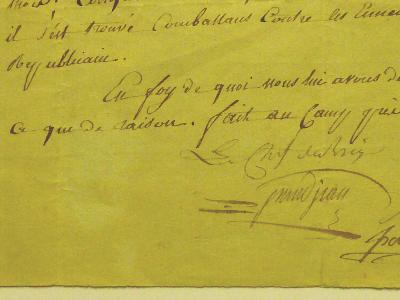 il s'est trouvé Combattans Contre les Ennem
Republicain.
En foy de quoi nous lui avons de
ce que de raison. fait au Camp près
Le Chef de Brig